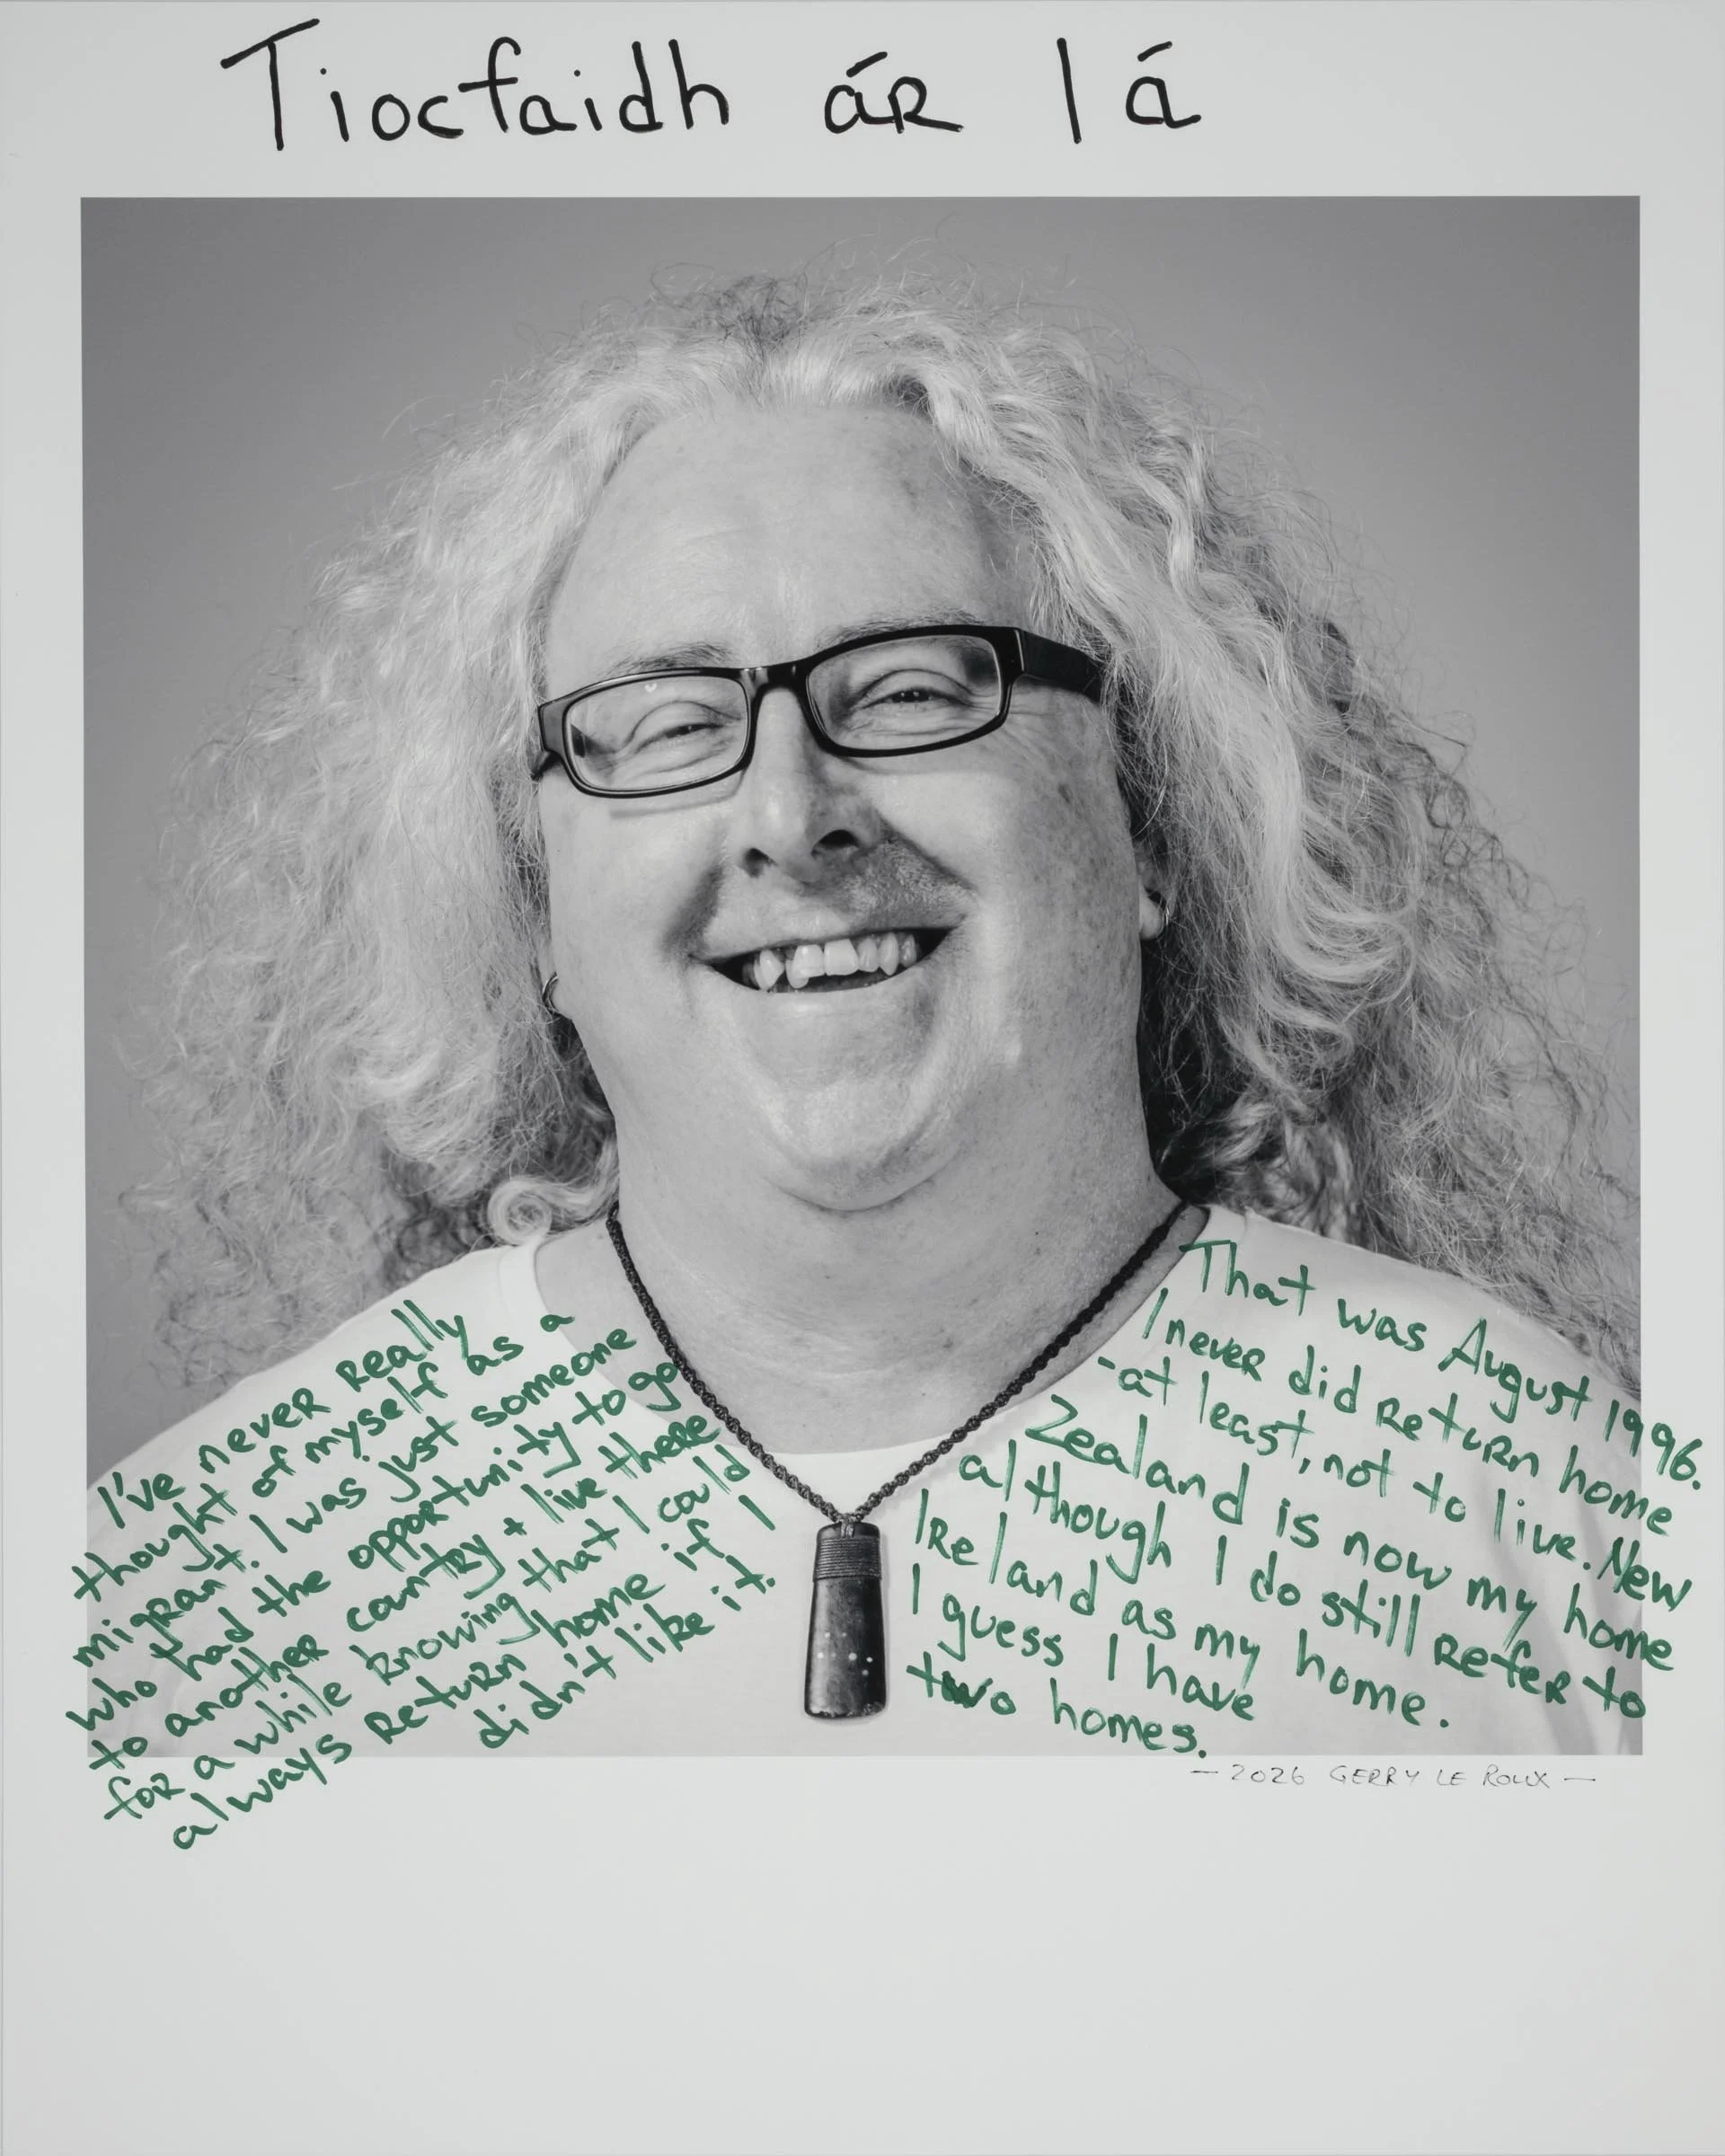 Tiocfaidh ár lá
I've never really
thought of myself as a
migrant. I was just someone
who had the opportunity to go
to another country + live there
for a while knowing that I could
always return home if I
didn't like it.
That was August 1996.
I never did return home
-at least, not to live. New
Zealand is now my home
although I do still refer to
Ireland as my home.
I guess I have
two homes.
— 2026 GERRY LE ROUX —